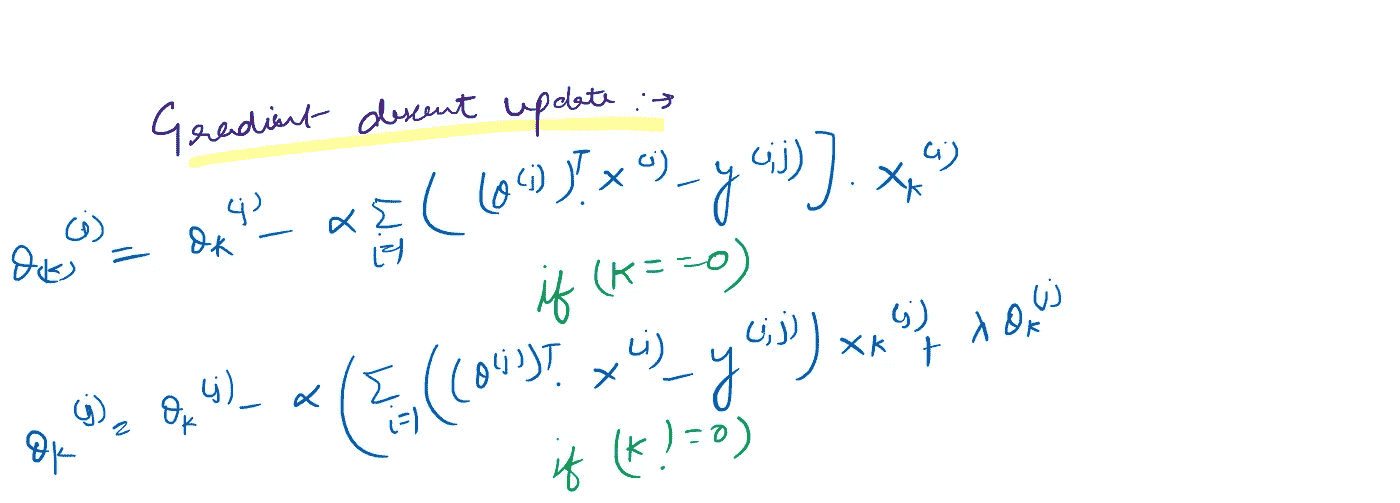 Gradient descent update :→
θ_(k)^(j) = θ_k^(j) − α Σ_{i=1} ( (θ^(j))^T . x^(i) − y^(i,j) ] . x_k^(i)
if (k = = 0)
θ_k^(j) = θ_k^(j) − α ( Σ_{i=1} ( (θ^(j))^T . x^(i) − y^(i,j) ) x_k^(i) + λ θ_k^(j)
if (k != 0)